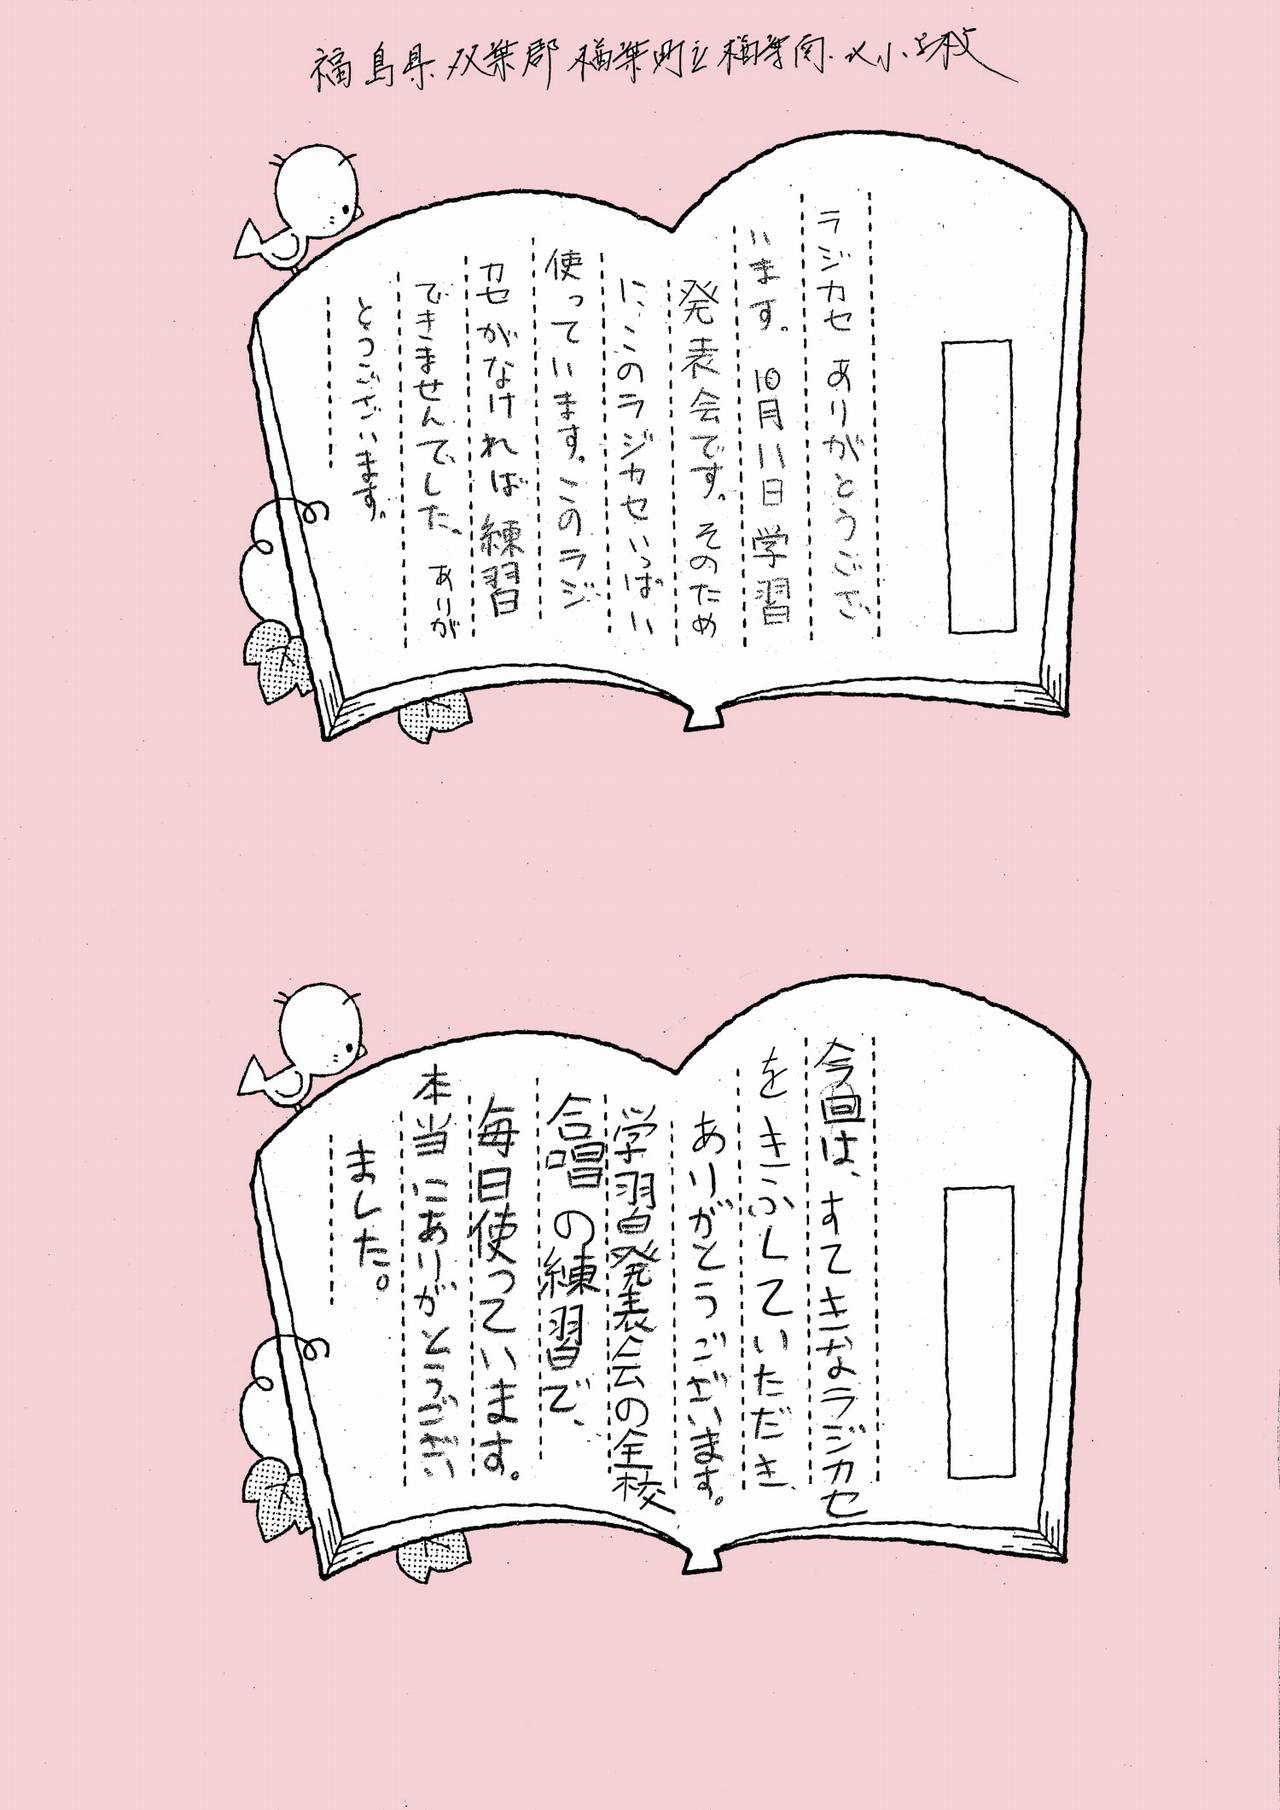 福島県双葉郡楢葉町立楢葉南.北小学校
ラジカセありがとうござ
います。10月11日学習
発表会です。そのため
に、このラジカセいっぱい
使っています。このラジ
カセがなければ練習
できませんでした。ありが
とうございます。
今回は、すてきなラジカセ
をきふしていただき、
ありがとうございます。
学習発表会の全校
合唱の練習で、
毎日使っています。
本当にありがとうござい
ました。